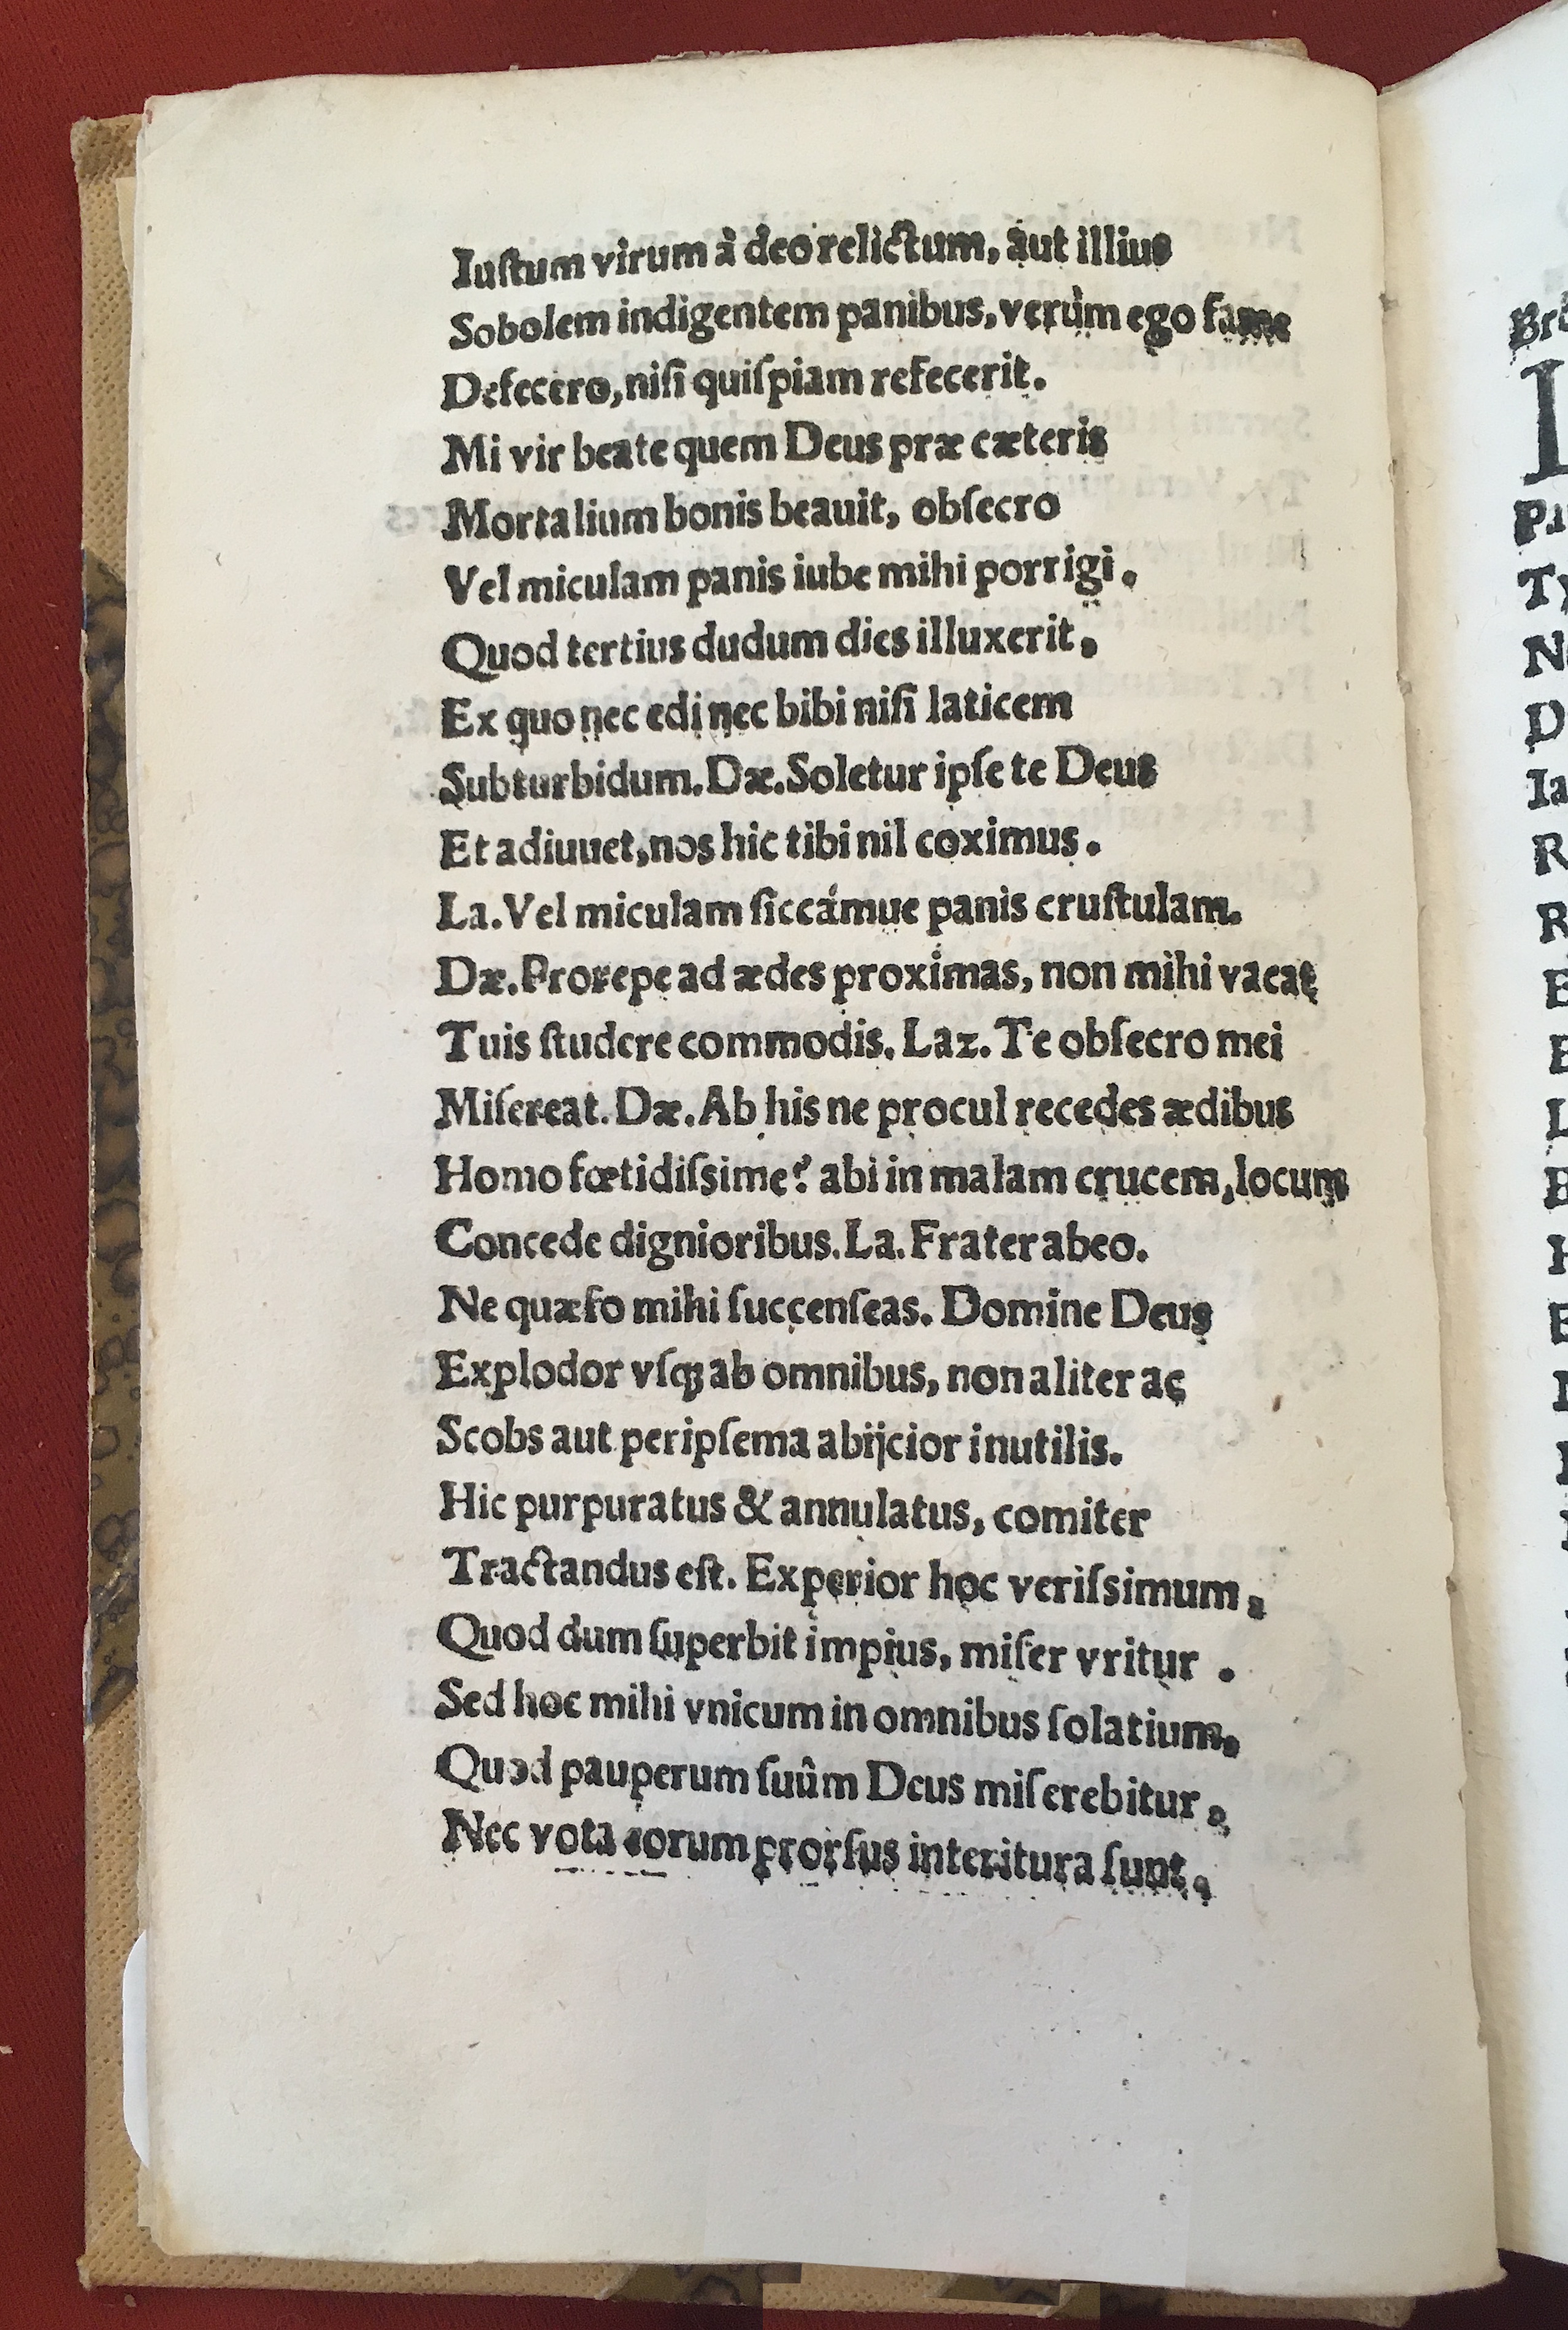 Iuſtum virum à deo relictum, aut illius
Sobolem indigentem panibus, verùm ego fame
Defecero, niſi quiſpiam refecerit.
Mi vir beate quem Deus præ cæteris
Mortalium bonis beauit, obſecro
Vel miculam panis iube mihi porrigi.
Quod tertius dudum dies illuxerit,
Ex quo nec edi nec bibi niſi laticem
Subturbidum. Dæ. Soletur ipſe te Deus
Et adiuuet, nos hic tibi nil coximus.
La. Vel miculam ſiccámue panis cruſtulam.
Dæ. Prorepe ad ædes proximas, non mihi vacat
Tuis ſtudere commodis. Laz. Te obſecro mei
Miſereat. Dæ. Ab his ne procul recedes ædibus
Homo fœtidiſsime? abi in malam crucem, locum
Concede dignioribus. La. Frater abeo.
Ne quæſo mihi ſuccenſeas. Domine Deus
Explodor vſqꝫ ab omnibus, non aliter ac
Scobs aut peripſema abijcior inutilis.
Hic purpuratus & annulatus, comiter
Tractandus eſt. Experior hoc veriſsimum,
Quod dum ſuperbit impius, miſer vritur .
Sed hoc mihi vnicum in omnibus ſolatium,
Quod pauperum ſuûm Deus miſerebitur,
Nec vota eorum prorſus interitura ſunt,
Ty
N
D
Ia
R
R